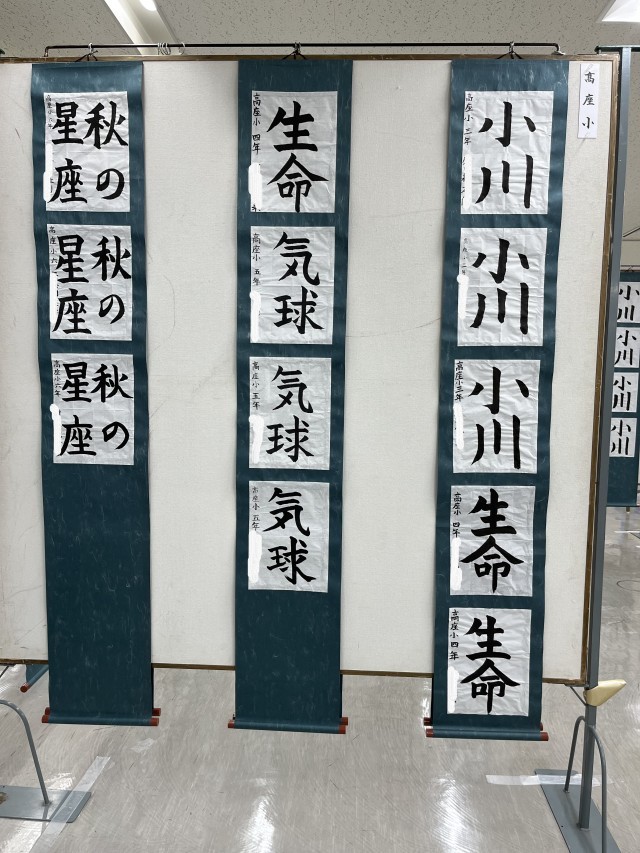 高座小
小川
高座小 三年
小川
小川
高座小三年
生命
高座小 四年
生命
高座小 四年
生命
高座小 四年
気球
高座小 五年
気球
高座小 五年
気球
高座小 五年
秋の
星座
秋の
星座
高座小六年
秋の
星座
高座小六年
小川
小川
小川
小川